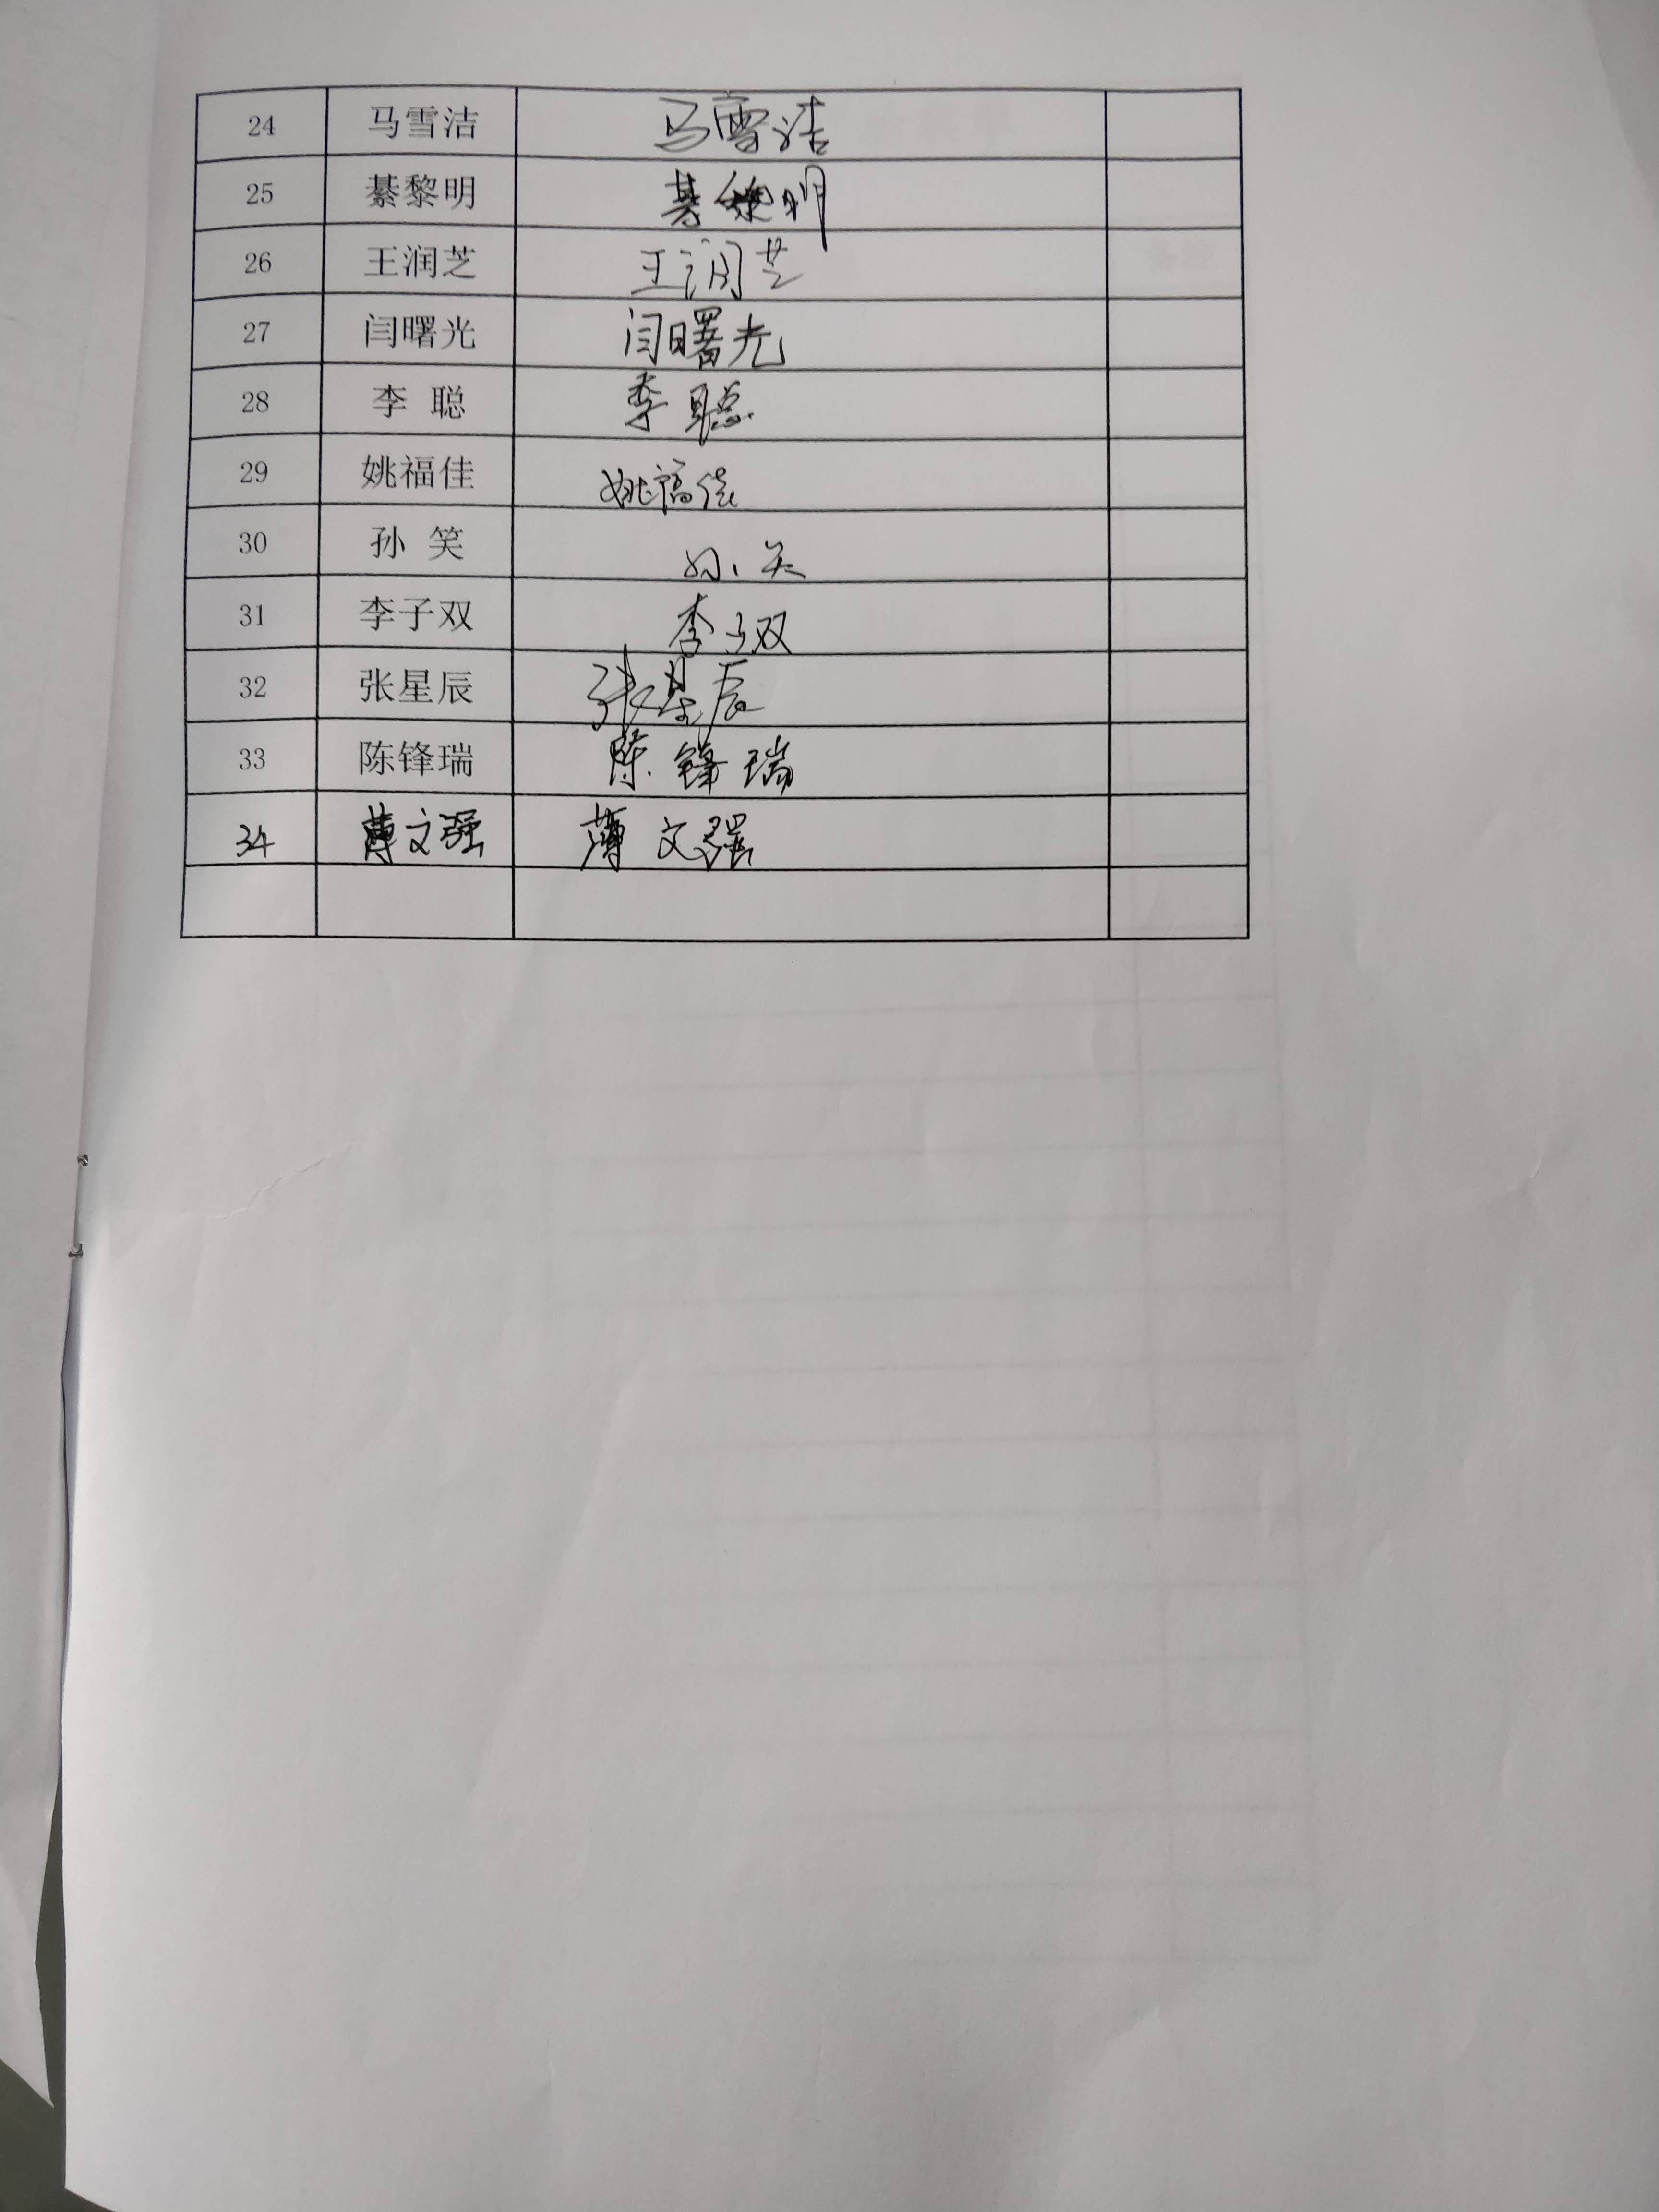 24 马雪洁 马雪洁
25 綦黎明 綦黎明
26 王润芝 王润芝
27 闫曙光 闫曙光
28 李 聪 李聪
29 姚福佳 姚福佳
30 孙 笑 孙笑
31 李子双 李子双
32 张星辰 张星辰
33 陈锋瑞 陈锋瑞
34 薄文强 薄文强